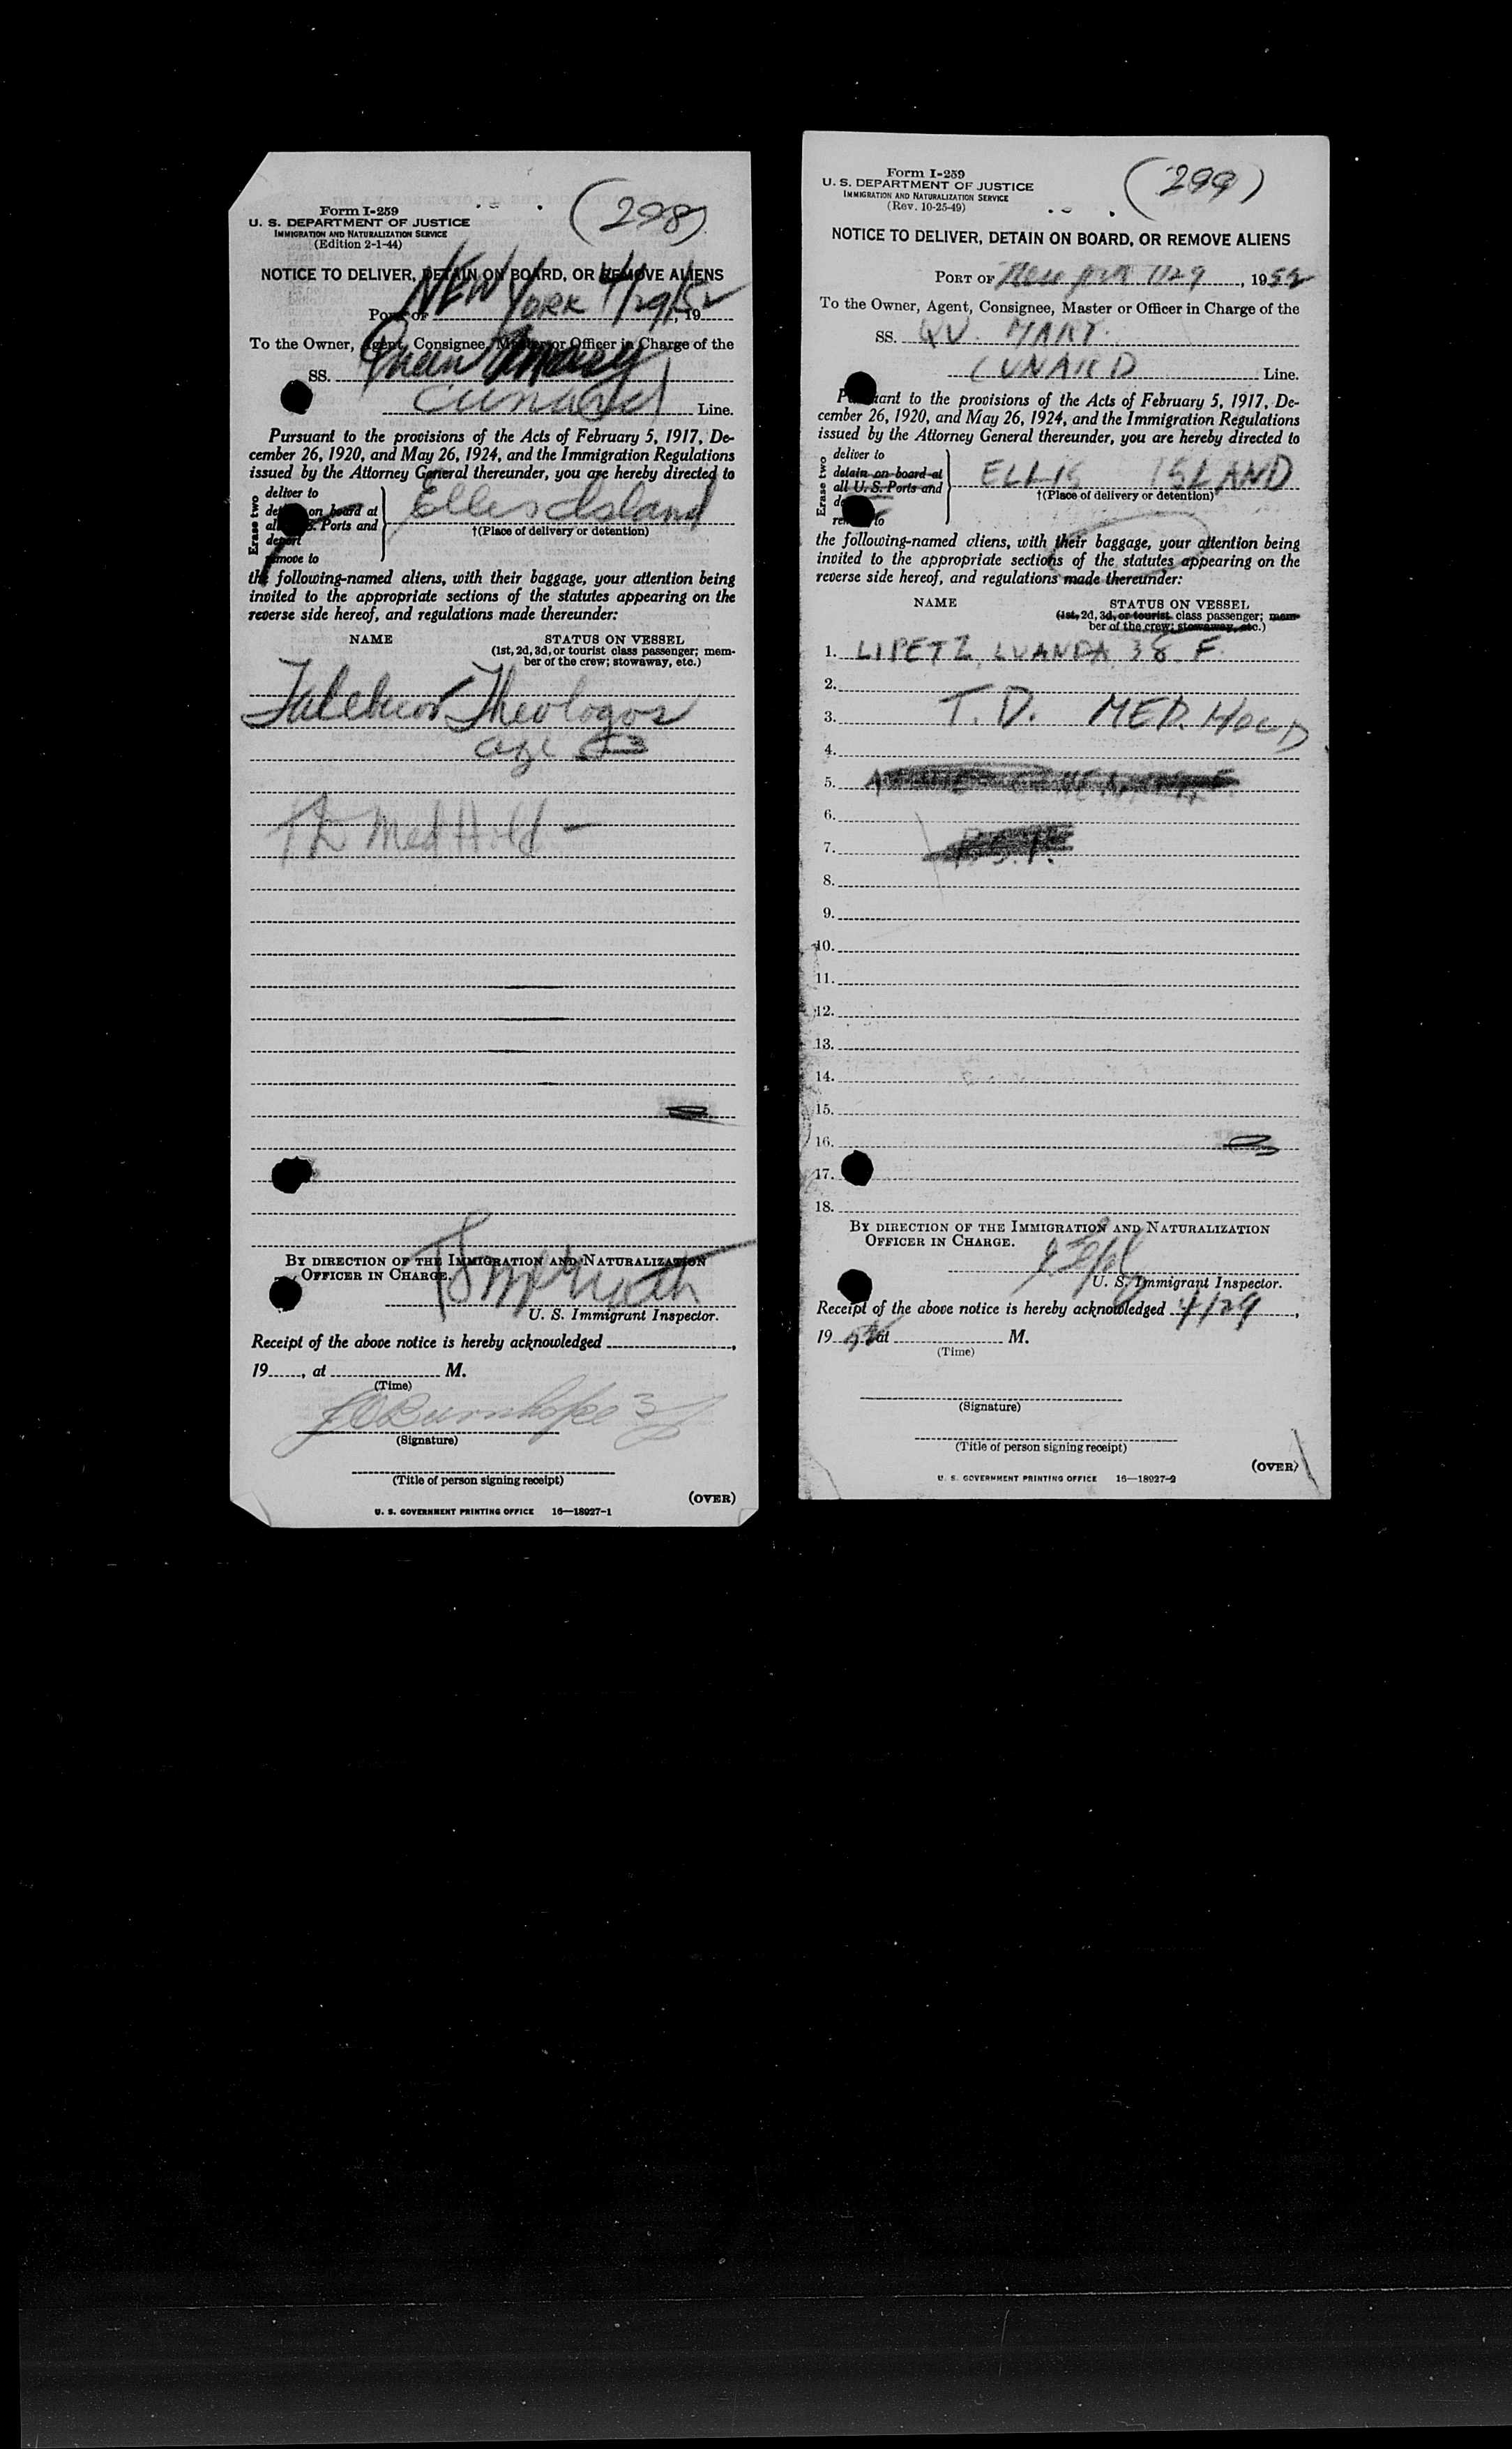 Form I-259
U. S. DEPARTMENT OF JUSTICE
IMMIGRATION AND NATURALIZATION SERVICE
(Edition 2-1-44)
(298)
NOTICE TO DELIVER, DETAIN ON BOARD, OR REMOVE ALIENS
Port of NEW YORK 4/29/52, 19
To the Owner, Agent, Consignee, Master or Officer in Charge of the
SS. Queen Mary
Cunard Line.
Pursuant to the provisions of the Acts of February 5, 1917, De-
cember 26, 1920, and May 26, 1924, and the Immigration Regulations
issued by the Attorney General thereunder, you are hereby directed to
Erase two
deliver to
detain on board at
all U. S. Ports and
deport
remove to
Ellis Island
†(Place of delivery or detention)
the following-named aliens, with their baggage, your attention being
invited to the appropriate sections of the statutes appearing on the
reverse side hereof, and regulations made thereunder:
NAME STATUS ON VESSEL
(1st, 2d, 3d, or tourist class passenger; mem-
ber of the crew; stowaway, etc.)
Theologos
age 53
Med Hold -
BY DIRECTION OF THE IMMIGRATION AND NATURALIZATION
OFFICER IN CHARGE.
U. S. Immigrant Inspector.
Receipt of the above notice is hereby acknowledged
19, at M.
(Time)
(Signature)
(Title of person signing receipt)
(OVER)
U. S. GOVERNMENT PRINTING OFFICE 16—18927-1
Form I-259
U. S. DEPARTMENT OF JUSTICE
IMMIGRATION AND NATURALIZATION SERVICE
(Rev. 10-25-49)
(299)
NOTICE TO DELIVER, DETAIN ON BOARD, OR REMOVE ALIENS
PORT OF New York 4/29, 1952
To the Owner, Agent, Consignee, Master or Officer in Charge of the
SS. QU. MARY.
CUNARD Line.
Pursuant to the provisions of the Acts of February 5, 1917, De-
cember 26, 1920, and May 26, 1924, and the Immigration Regulations
issued by the Attorney General thereunder, you are hereby directed to
Erase two
deliver to
detain on board at
all U. S. Ports and
remove to
ELLIS ISLAND
†(Place of delivery or detention)
the following-named aliens, with their baggage, your attention being
invited to the appropriate sections of the statutes appearing on the
reverse side hereof, and regulations made thereunder:
NAME STATUS ON VESSEL
(1st, 2d, 3d, or tourist class passenger; mem-
ber of the crew; stowaway, etc.)
1. LIPETZ, LUANDA 38 F.
2.
3. T. D. MED. HOLD
4.
5.
6.
7.
8.
9.
10.
11.
12.
13.
14.
15.
16.
17.
18.
BY DIRECTION OF THE IMMIGRATION AND NATURALIZATION
OFFICER IN CHARGE.
U. S. Immigrant Inspector.
Receipt of the above notice is hereby acknowledged 4/29,
1952 at M.
(Time)
(Signature)
(Title of person signing receipt)
(OVER)
U. S. GOVERNMENT PRINTING OFFICE 16—18927-2